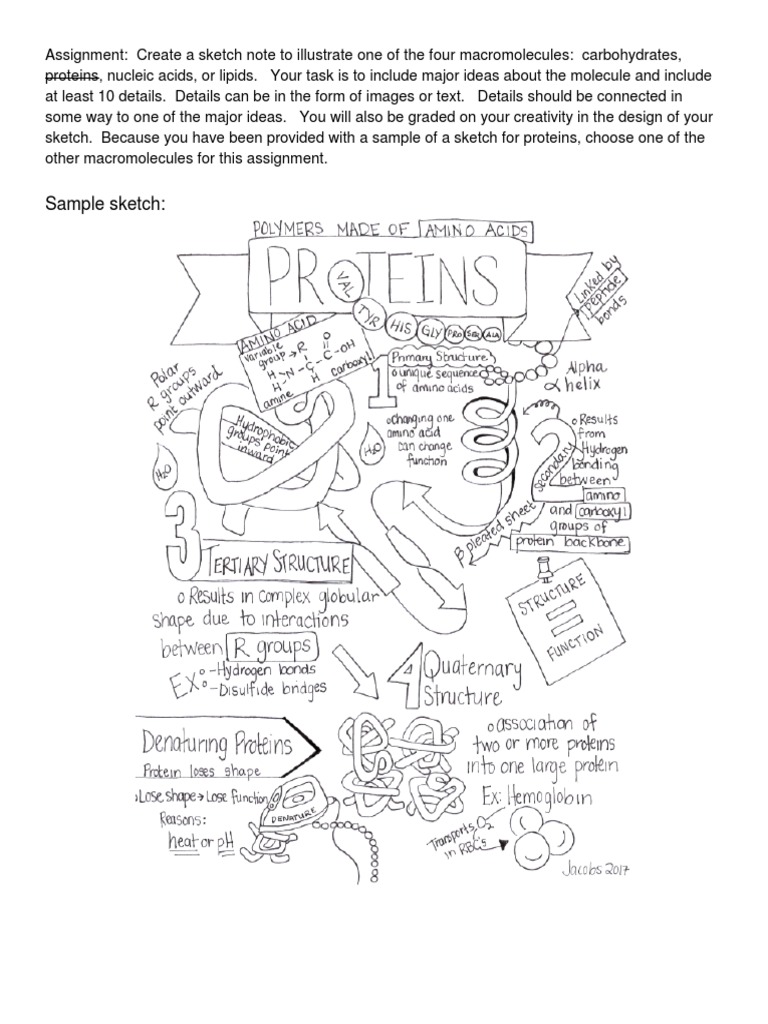 Assignment: Create a sketch note to illustrate one of the four macromolecules: carbohydrates,
proteins, nucleic acids, or lipids. Your task is to include major ideas about the molecule and include
at least 10 details. Details can be in the form of images or text. Details should be connected in
some way to one of the major ideas. You will also be graded on your creativity in the design of your
sketch. Because you have been provided with a sample of a sketch for proteins, choose one of the
other macromolecules for this assignment.
Sample sketch:
POLYMERS MADE OF AMINO ACIDS
PROTEINS
VAL
TYR
HIS
GLY
PRO
SER
ALA
Linked by
peptide
bonds
AMINO ACID
variable
group → R
O
H-N-C-C-OH
H
H
amine
carboxyl
Polar
R groups
point outward
Hydrophobic
groups point
inward
H₂O
H₂O
1
Primary Structure
o unique sequence
of amino acids
o Changing one
amino acid
can change
function
Alpha
α helix
2
secondary
o Results
from
Hydrogen
bonding
between
amino
and carboxyl
groups of
protein backbone
β pleated sheet
3
TERTIARY STRUCTURE
o Results in complex globular
shape due to interactions
between R groups
EX o -Hydrogen bonds
o -Disulfide bridges
STRUCTURE
=
FUNCTION
4
Quaternary
Structure
o association of
two or more proteins
into one large protein
Ex: Hemoglobin
Transports O₂
in RBC's
Denaturing Proteins
Protein loses shape
Lose shape → Lose function
Reasons:
heat or pH
DENATURE
Jacobs 2017